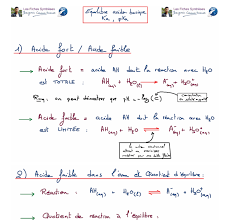 Les Fiches Synthèses
Les Fiches Synthèses
Équilibre acido-basique
Ka, pKa
1) Acide fort / Acide faible
→ Acide fort = acide AH dont la réaction avec H₂O
est TOTALE : AH(aq) + H₂O(l) → A⁻(aq) + H₃O⁺(aq)
Rmq : on peut démontrer que pH = -log(C)
→ Acide faible = acide AH dont la réaction avec H₂O
est LIMITÉE : AH(aq) + H₂O ⇌ A⁻(aq) + H₃O⁺(aq)
2) Acide faible dans l'eau et Quotient d'équilibre :
→ Réaction : AH(aq) + H₂O(l) ⇌ A⁻(aq) + H₃O⁺(aq)
→ Quotient de réaction à l'équilibre :